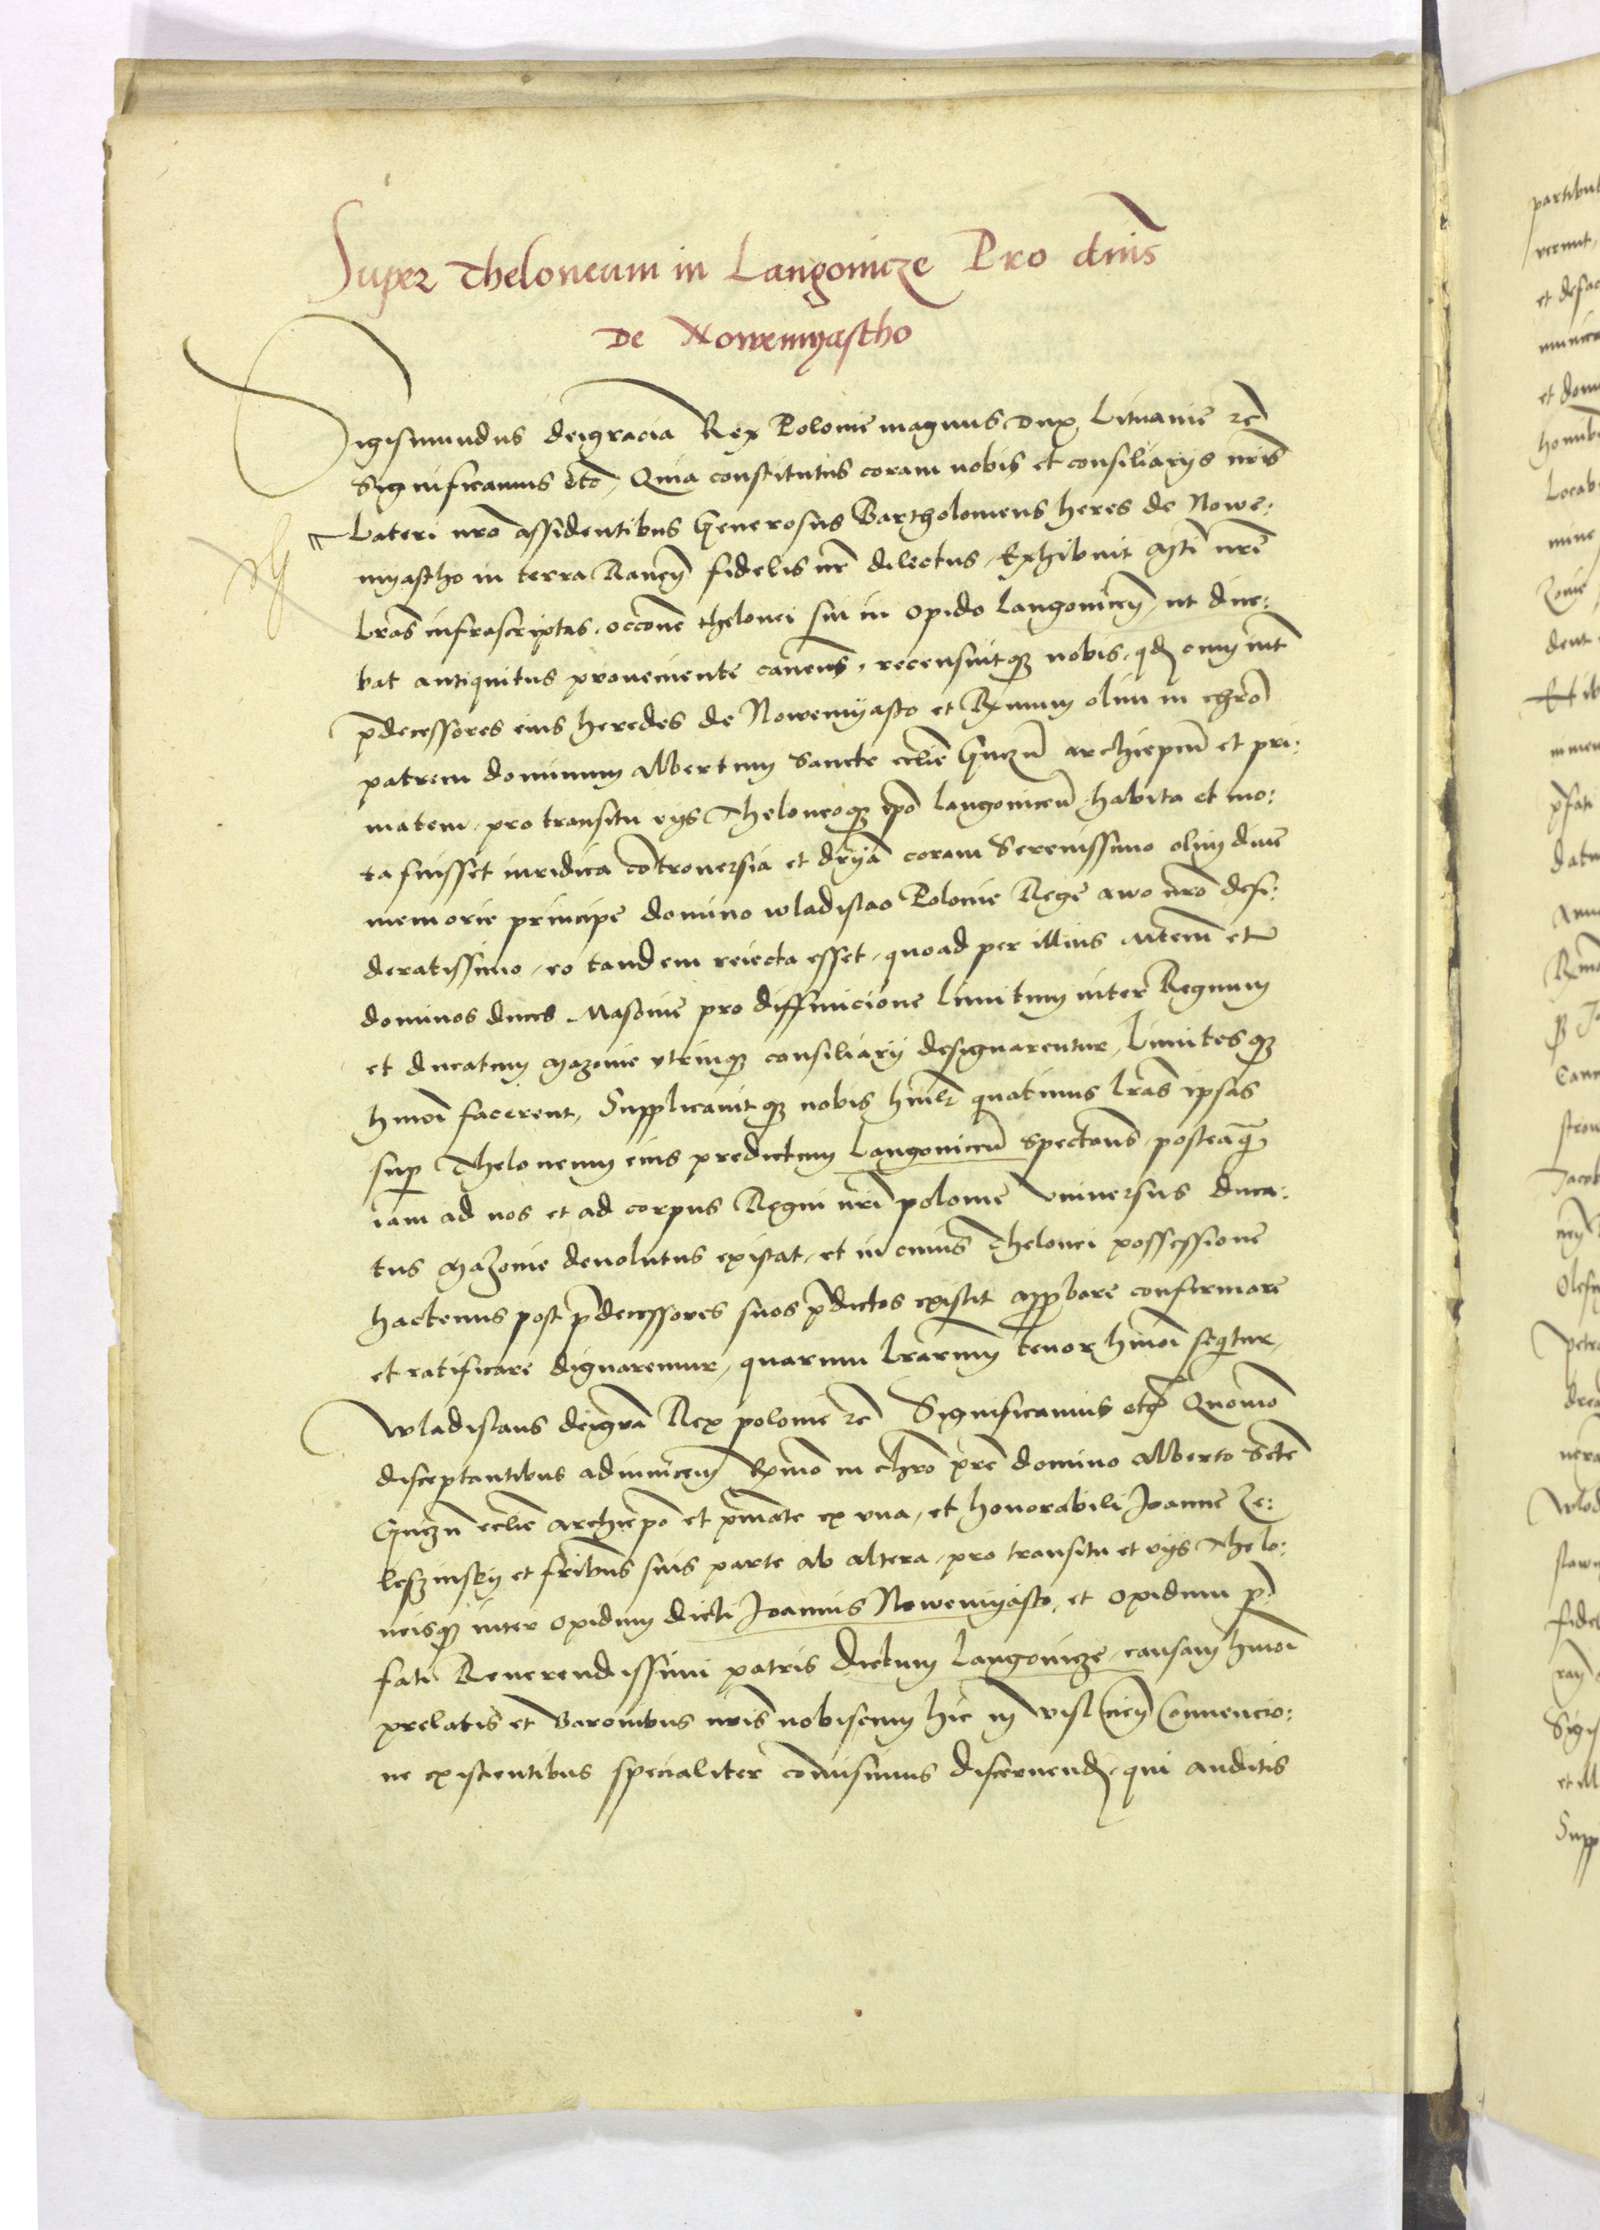 Super Theloneum in Langonicze Pro dnis
De Nowemyastho
Sigismundus deigracia Rex Polonie magnus Dux Lituanie rc
Significamus etc, Quia constitutus coram nobis et consiliarys nris
Lateri nro assidentibus Generosus Bartholomeus heres de Nowe:
myastho in terra Raven fidelis nr dilectus, Exhibuit Mti nre
lras infrascriptas, occone thelonei sui in opido langonicen, ut dice:
bat antiquitus proveniente cavens, recensuitq nobis, qd cum int
pdecessores eius heredes de Nowemyasto et Rxmum olim in chro
patrem dominum Albertum Sancte eclie Gnezn archiepum et pri:
matem, pro transitu vys Theloneoq ipo langonicen, habita et mo:
ta fuisset iuridica controversia et dryia coram Serenissimo olim dive
memorie principe domino wladislao Polonie Rege awo nro desi:
deratissimo, eo tandem reiecta esset, quoad per illius Mtem et
dominos duces Masovie pro diffinicione limitum inter Regnum
et ducatum Mazovie utrinq consiliarii designarentur, Limitesq
hmoi facerent, Supplicavitq nobis hmlr quatinus lras ipsas
sup Theloneum eius predictum Langonicen spectans, posteaq
iam ad nos et ad corpus Regni nri polonie Universus duca:
tus Mazovie devolutus existat, et in cuius Thelonei possessione
hactenus post pdecessores suos pdictos existit approbare confirmare
et ratificare dignaremur, quarum lrarum tenor hmoi seqtur,
Wladislaus deigra Rex polonie rc Significamus etc Quomo
disceptantibus adinvicem Rxmo in chro pre domino Alberto Scte
Gnezn eclie archiepo et pmate ex una, et honorabili Joanne Ze:
leszinsky et fribus suis parte ab altera, pro transitu et vys Thelo:
neisq inter opidum dicti Joannis Nowemyasto, et opidum p
fati Reverendissimi patris dictum Langonicze, causam hmoi
prelatis et Baronibus nris nobiscum hic in Visliciens Convencio:
ne existentibus specialiter comisimus discernend, qui auditis